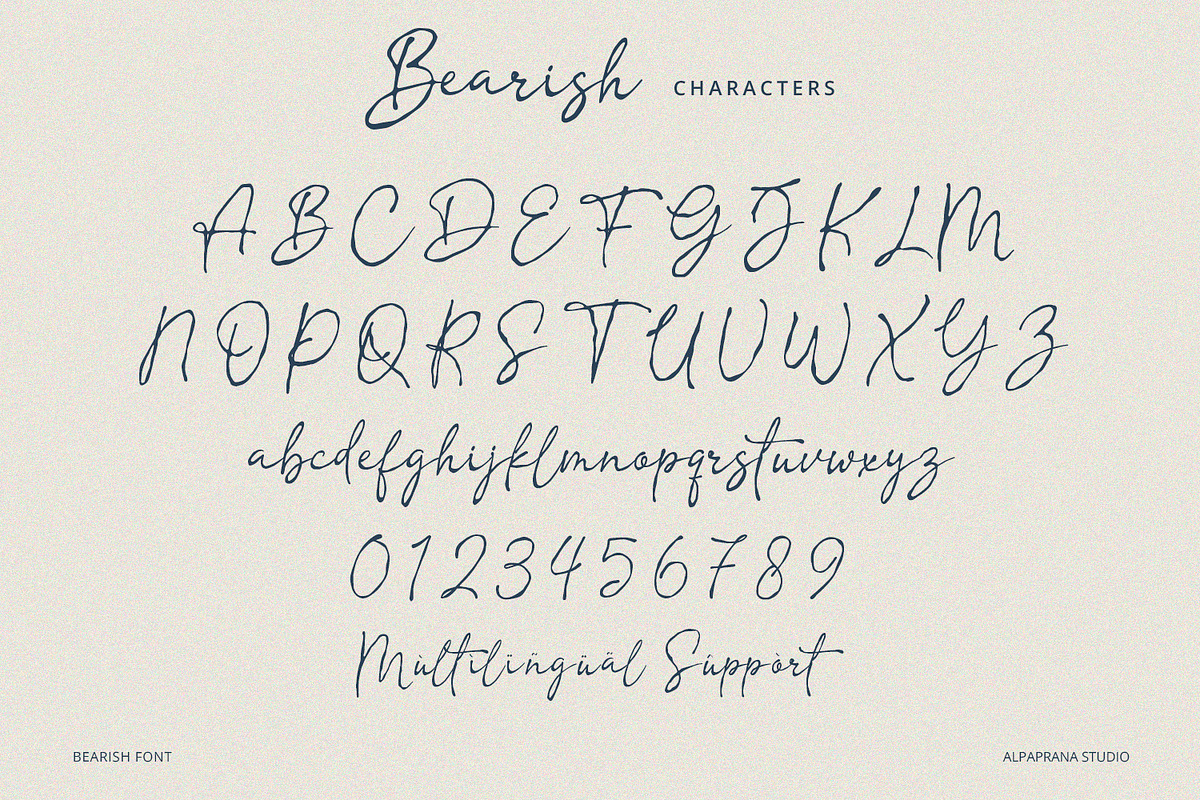 Bearish CHARACTERS
A B C D E F G J K L M
N O P Q R S T U V W X Y Z
abcdefghijklmnopqrstuvwxyz
0123456789
Mùltìlïñgüãl Súppòrt
BEARISH FONT
ALPAPRANA STUDIO